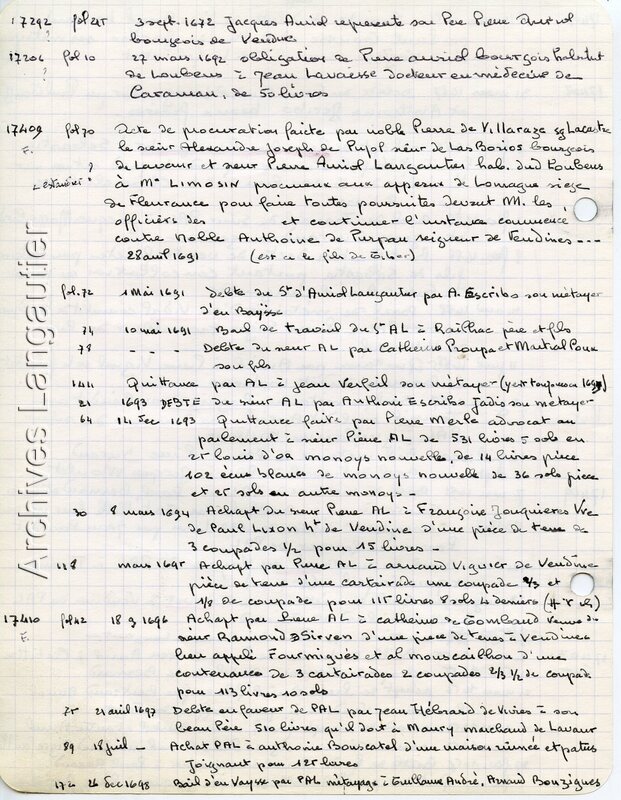 17292 fol 25 3 sept. 1672 Jacques Auriol represente son Pere Pierre Auriol
? bourgeois de Vendine
17206 fol 10 27 mars 1692 obligation de Pierre auriol bourgeois habitant
? de Loubens à Jean Lavaesse docteur en médecine de
Caraman, de 50 livres
17409 fol 70 Acte de procuration faicte par noble Pierre de Villaraze sg Lacastre
F. le sieur Alexandre Joseph de Pujol sieur de Las Borios bourgeois
? de Lavaur et sieur Pierre Auriol Langautier hab. dud Loubens
à Me LIMOSIN procureur aux appeaux de Lomagne siege
de Fleurance pour faire toutes poursuites devant M. les
officiers des et continuer l'instance commencé
contre Noble Anthoine de Purpan seigneur de Vendines ...
28 avril 1691 (est ce le fils de )
fol. 72 1 Mai 1691 Debte du Sr d'Auriol Langautier par A. Escribe son métayer
d'en Baysse
74 10 mai 1691 Bail de travail du Sr AL à Railhac père et fils
78 - - - - Debte du sieur AL par Catherine Proupa et Martial Poux
son fils
1411 Quittance par AL à Jean Verfeil son métayer (y est toujours en 1695)
21 1693 DEBTE du sieur AL par Anthoine Escribe jadis son metayer
64 14 dec 1693 Quittance faite par Pierre Merle advocat au
parlement à sieur Pierre AL de 531 livres 5 sols en
25 louis d'or monoye nouvelle, de 14 livres piece
102 écus blancs de monoye nouvelle de 36 sols piece
et 25 sols en autre monoye -
30 8 mars 1694 Achapt du sieur Pierre AL à Françoise Jouquieres Vve
de Paul Lixon ht de Vendine d'une pièce de terre de
3 coupades 1/2 pour 15 livres -
118 mars 1695 Achapt par Pierre AL à arnaud Viguier de Vendine
pièce de terre d'une cartairade une coupade 2/3 et
1/8 de coupade pour 115 livres 8 sols 4 deniers
17410 fol 42 18 9 1696 Achapt par Pierre AL à catherine de Gombaud veuve du
F. sieur Raimond Sirven d'une piece de terres à Vendines
lieu appelé Fourmigués et al mouscailhou d'une
contenance de 3 cartairades 2 coupades 2/3 1/2 de coupade
pour 113 livres 10 sols
75 21 avril 1697 Debte en faveur de PAL par Jean Hébrard de Vivies à son
beau Père 510 livres qu'il doit à Maury marchand de Lavaur
89 18 juil - Achat PAL à anthoine Bouscatel d'une maison ruinée et patus
joignant pour 125 livres
170 26 dec 1698 Bail d'en Vaysse par PAL métayage à Guillaume André, Arnaud Bonzigues
Archives Langautier